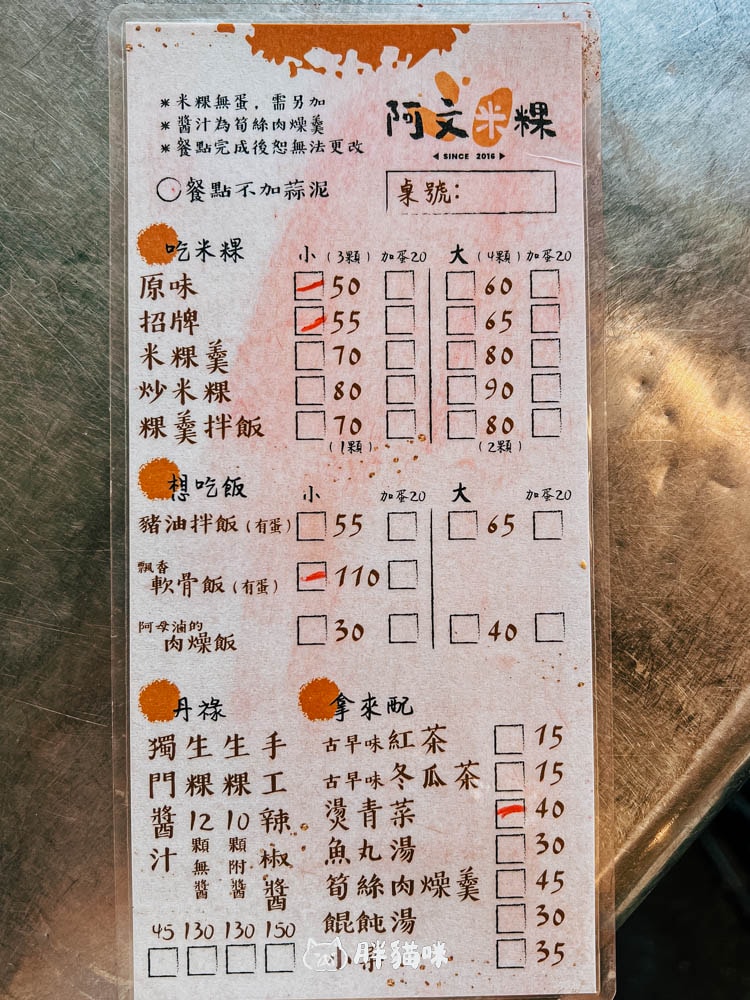 *米粿無蛋，需另加
*醬汁為筍絲肉燥羹
*餐點完成後恕無法更改
阿文米粿
SINCE 2016
餐點不加蒜泥
桌號：
吃米粿 小（3顆） 加蛋20 大（4顆） 加蛋20
原味 50 60
招牌 55 65
米粿羹 70 80
炒米粿 80 90
粿羹拌飯 70 80
（1顆） （2顆）
想吃飯 小 加蛋20 大 加蛋20
豬油拌飯（有蛋） 55 65
飄香
軟骨飯（有蛋） 110
阿母滷的
肉燥飯 30 40
丹祿
獨門醬汁 45
生粿12顆無醬 130
生粿10顆附醬 130
手工辣椒醬 150
拿來配
古早味紅茶 15
古早味冬瓜茶 15
燙青菜 40
魚丸湯 30
筍絲肉燥羹 45
餛飩湯 30
35
胖貓咪